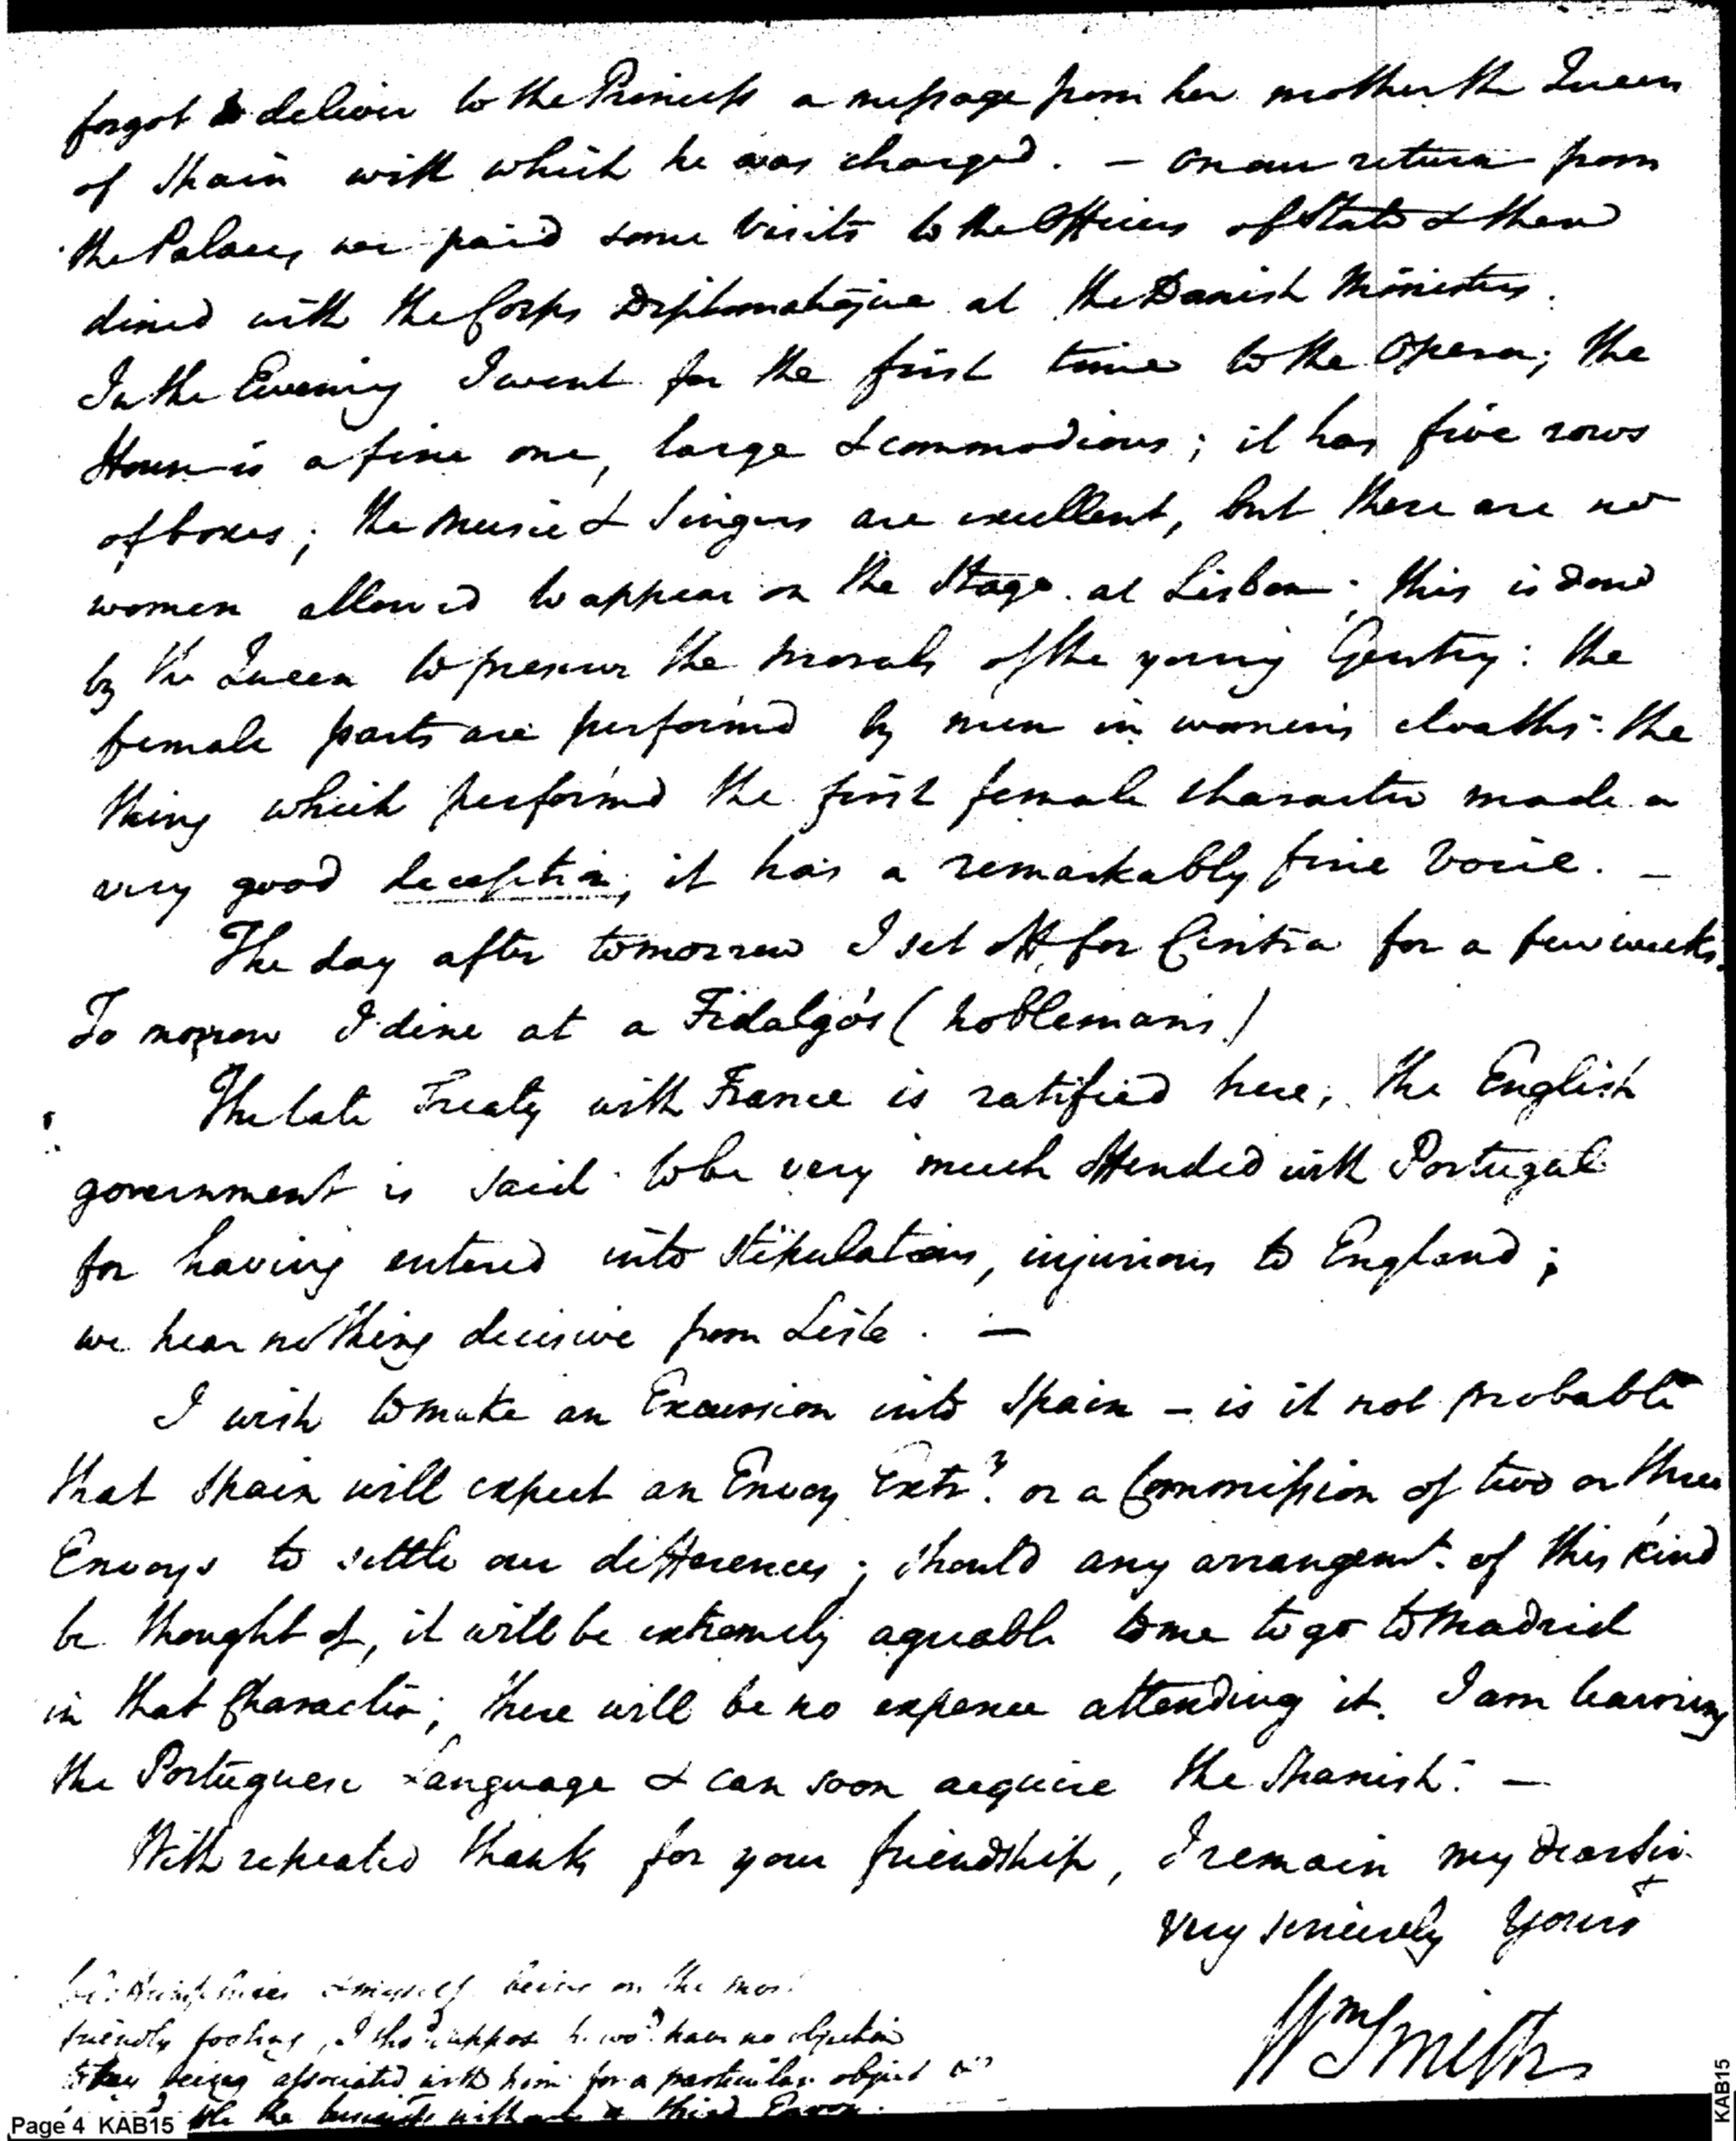 forgot to deliver to the Princess a message from her mother the Queen
of Spain with which he was charged. – On our return from
the Palace, we paid some Visits to the Officers of State & then
dined with the Corps Diplomatique at the Danish Ministers.
In the Evening I went for the first time to the Opera; the
House is a fine one, large & commodious; it has five rows
of boxes; the Music & Singers are excellent, but there are no
women allowed to appear on the Stage at Lisbon; this is done
by the Queen to preserve the morals of the young Gentry: the
female parts are perform'd by men in women's cloaths: the
thing which perform'd the first female character made a
very good deception; it has a remarkably fine Voice. –
The day after tomorrow I set off for Cintra for a few weeks.
To morrow I dine at a Fidalgo's (noblemans)
The late Treaty with France is ratified here; the English
government is said to be very much offended with Portugal
for having entered into Stipulations, injurious to England;
we hear nothing decisive from Lisle. –
I wish to make an Excursion into Spain – is it not probable
that Spain will expect an Envoy Extry. or a Commission of two or three
Envoys to settle our differences; should any arrangemt. of this kind
be thought of, it will be extremely agreable to me to go to Madrid
in that Character; there will be no expence attending it. I am learning
the Portuguese Language & can soon acquire the Spanish. –
With repeated thanks for your friendship, I remain my dear Sir
very sincerely Yours
Wm Smith
Humphreys & myself being on the most
friendly footing, I shod. suppose he wod. have no objection
to my being associated with him for a particular object
the business without a third Envoy.
Page 4 KAB15
KAB15